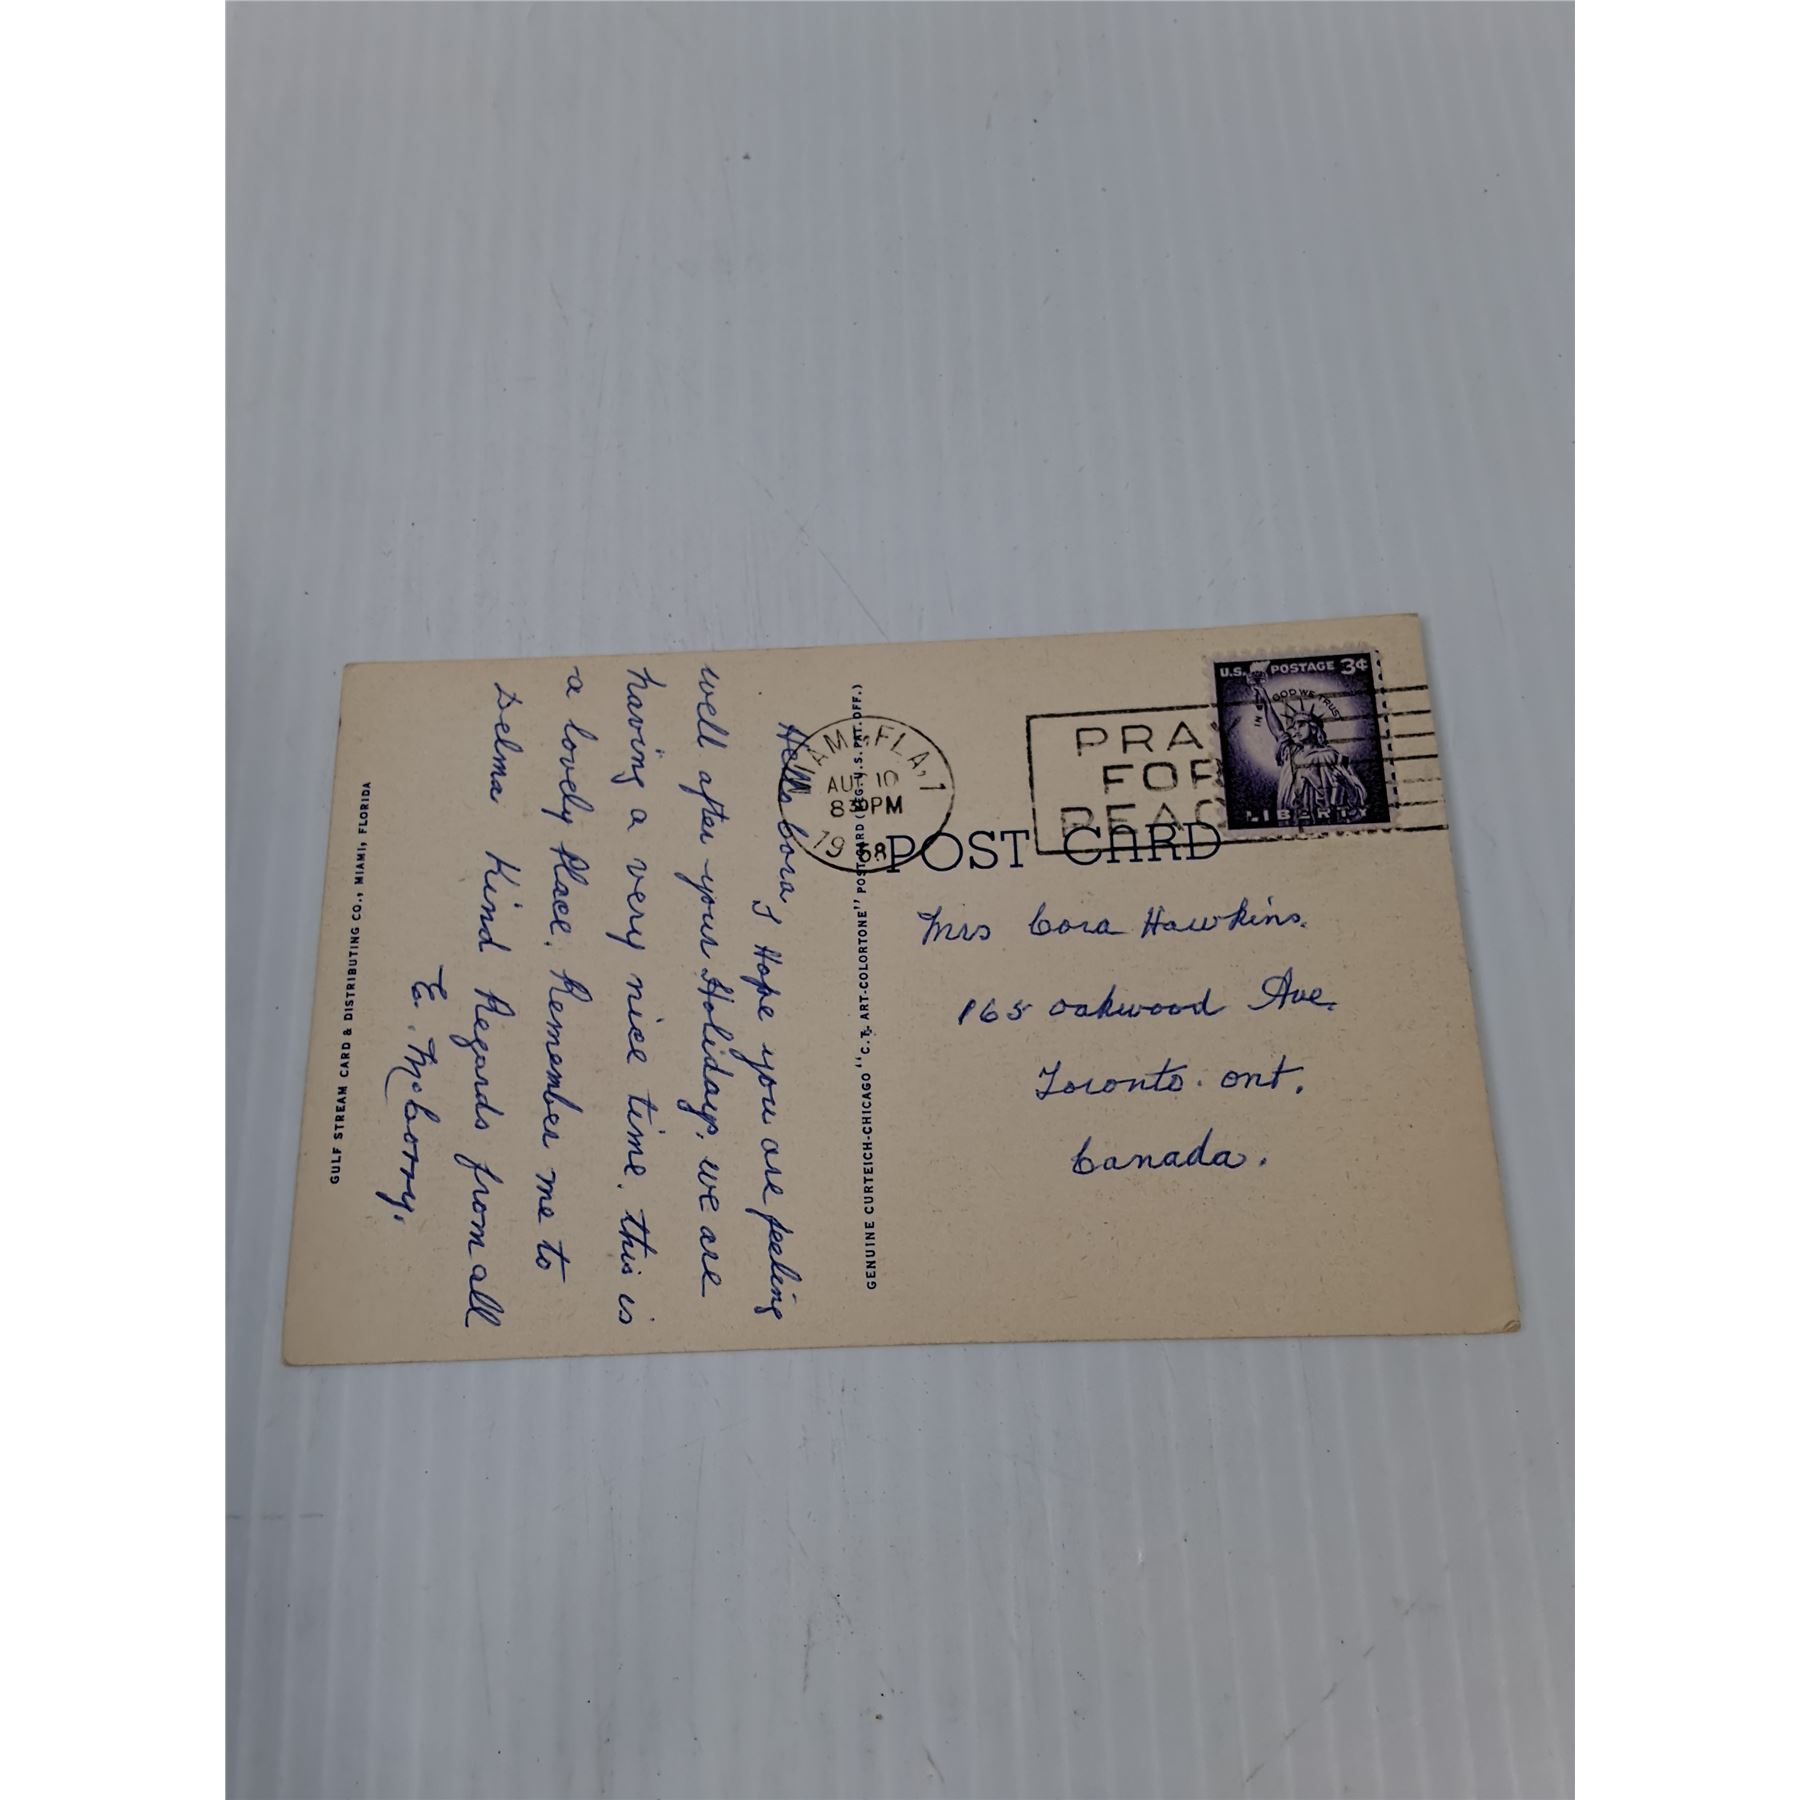 Hello Cora
I Hope you are feeling
well after your Holidays. we are
having a very nice time. this is
a lovely Place. Remember me to
Delma Kind Regards from all
E. McCorry.
GULF STREAM CARD & DISTRIBUTING CO., MIAMI, FLORIDA
GENUINE CURTEICH-CHICAGO "C.T. ART-COLORTONE" POST CARD (REG. U.S. PAT. OFF.)
AMI, FLA. 1
AUG 10
8 30 PM
1958
PRAY
FOR
PEACE
U.S. POSTAGE 3¢
IN GOD WE TRUST
LIBERTY
POST CARD
Mrs Cora Hawkins.
165 Oakwood Ave.
Toronto. Ont.
Canada.